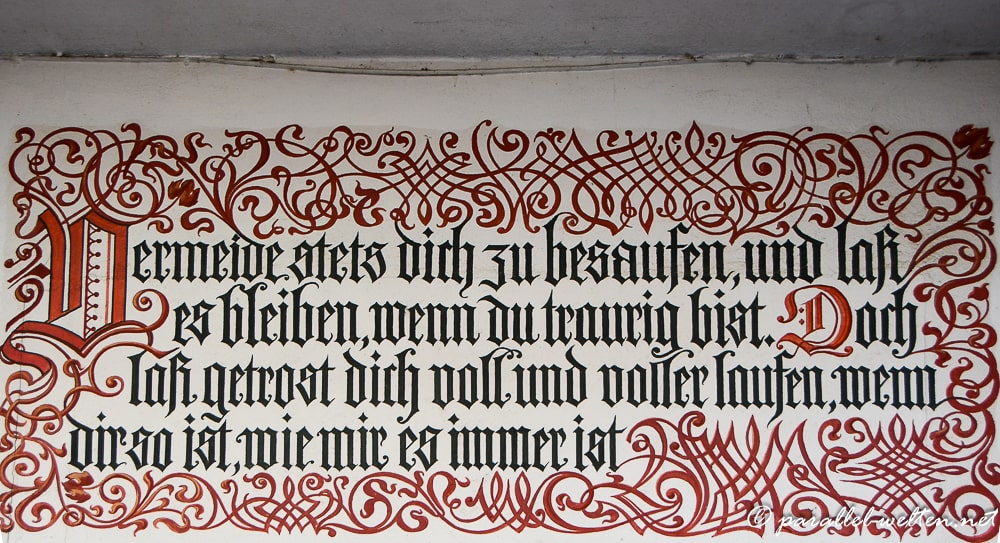 Vermeide stets dich zu besaufen, und laß
es bleiben, wenn du traurig bist. Doch
laß getrost dich voll und voller laufen, wenn
dir so ist, wie mir es immer ist
© parallel-welten.net